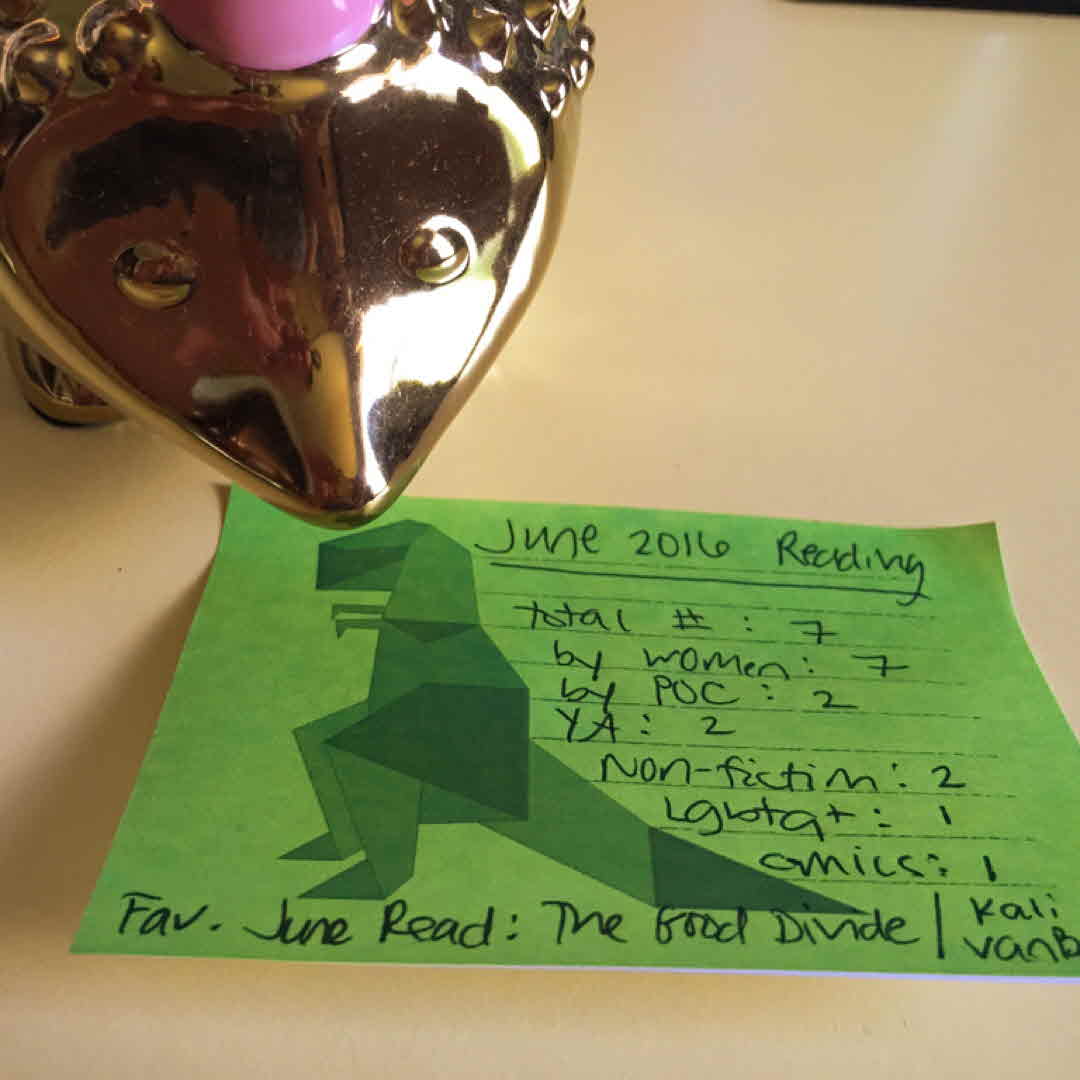 June 2016 Reading
total # : 7
by women: 7
by POC : 2
YA : 2
Non-fiction: 2
Lgbtq+ : 1
comics: 1
Fav. June Read: The Good Divide | Kali
VanB